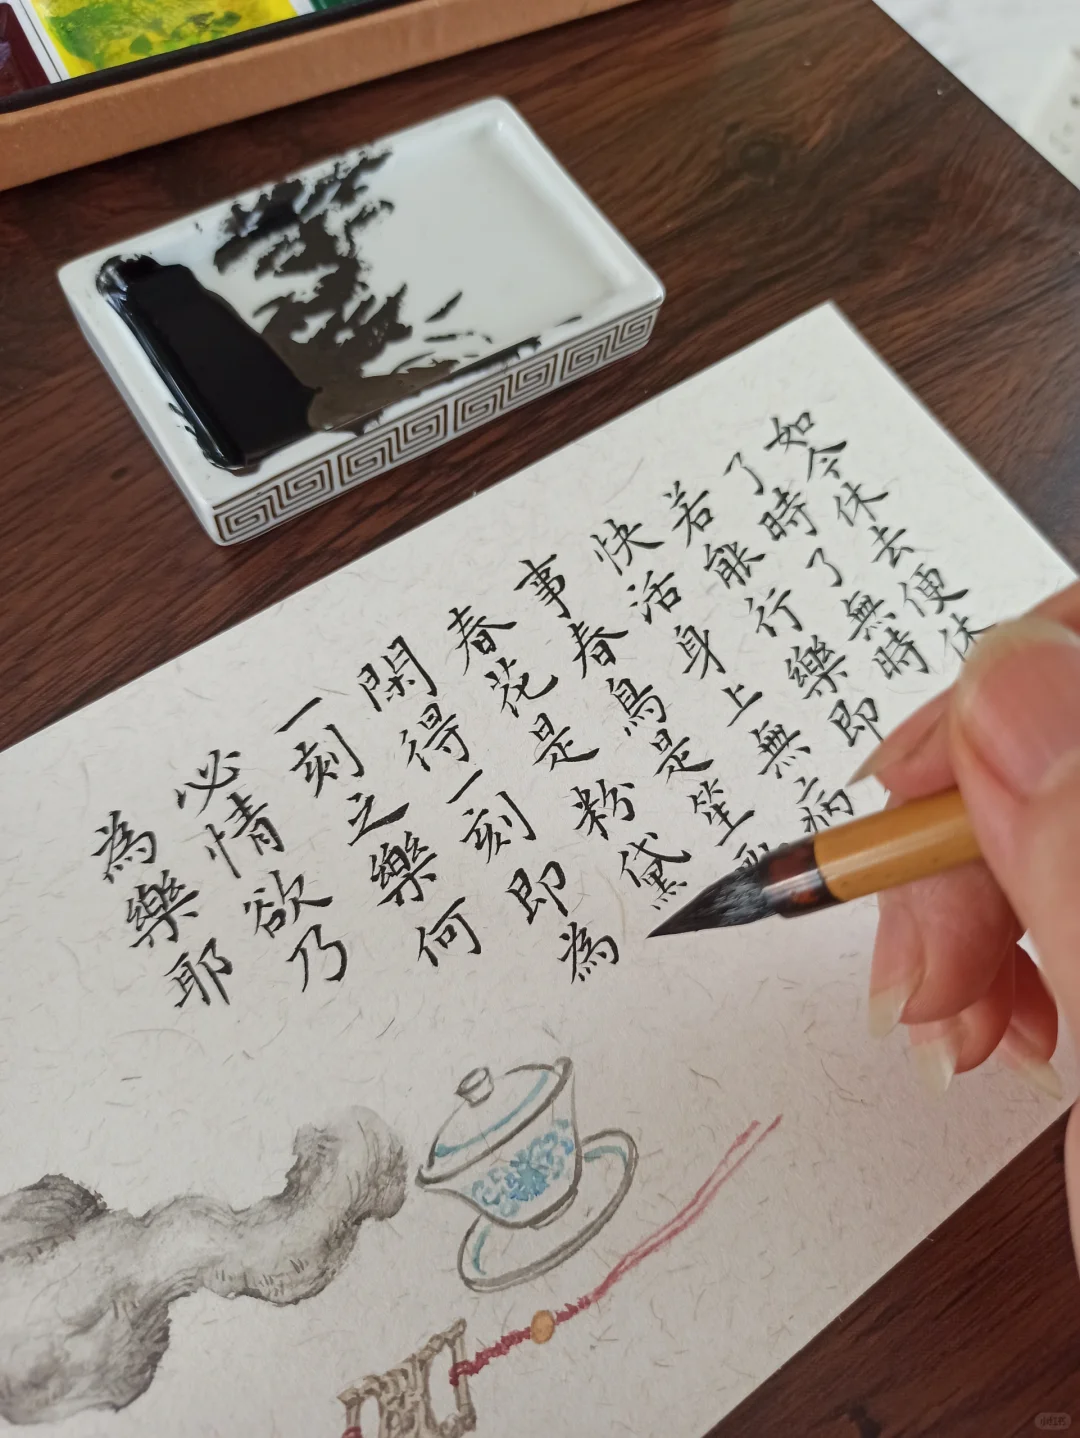 如今休去便休
了時了無時
若能行樂即
快活身上無病
事春鳥是笙
春花是粉黛
閑得一刻即為
一刻之樂何
必情欲乃
為樂耶